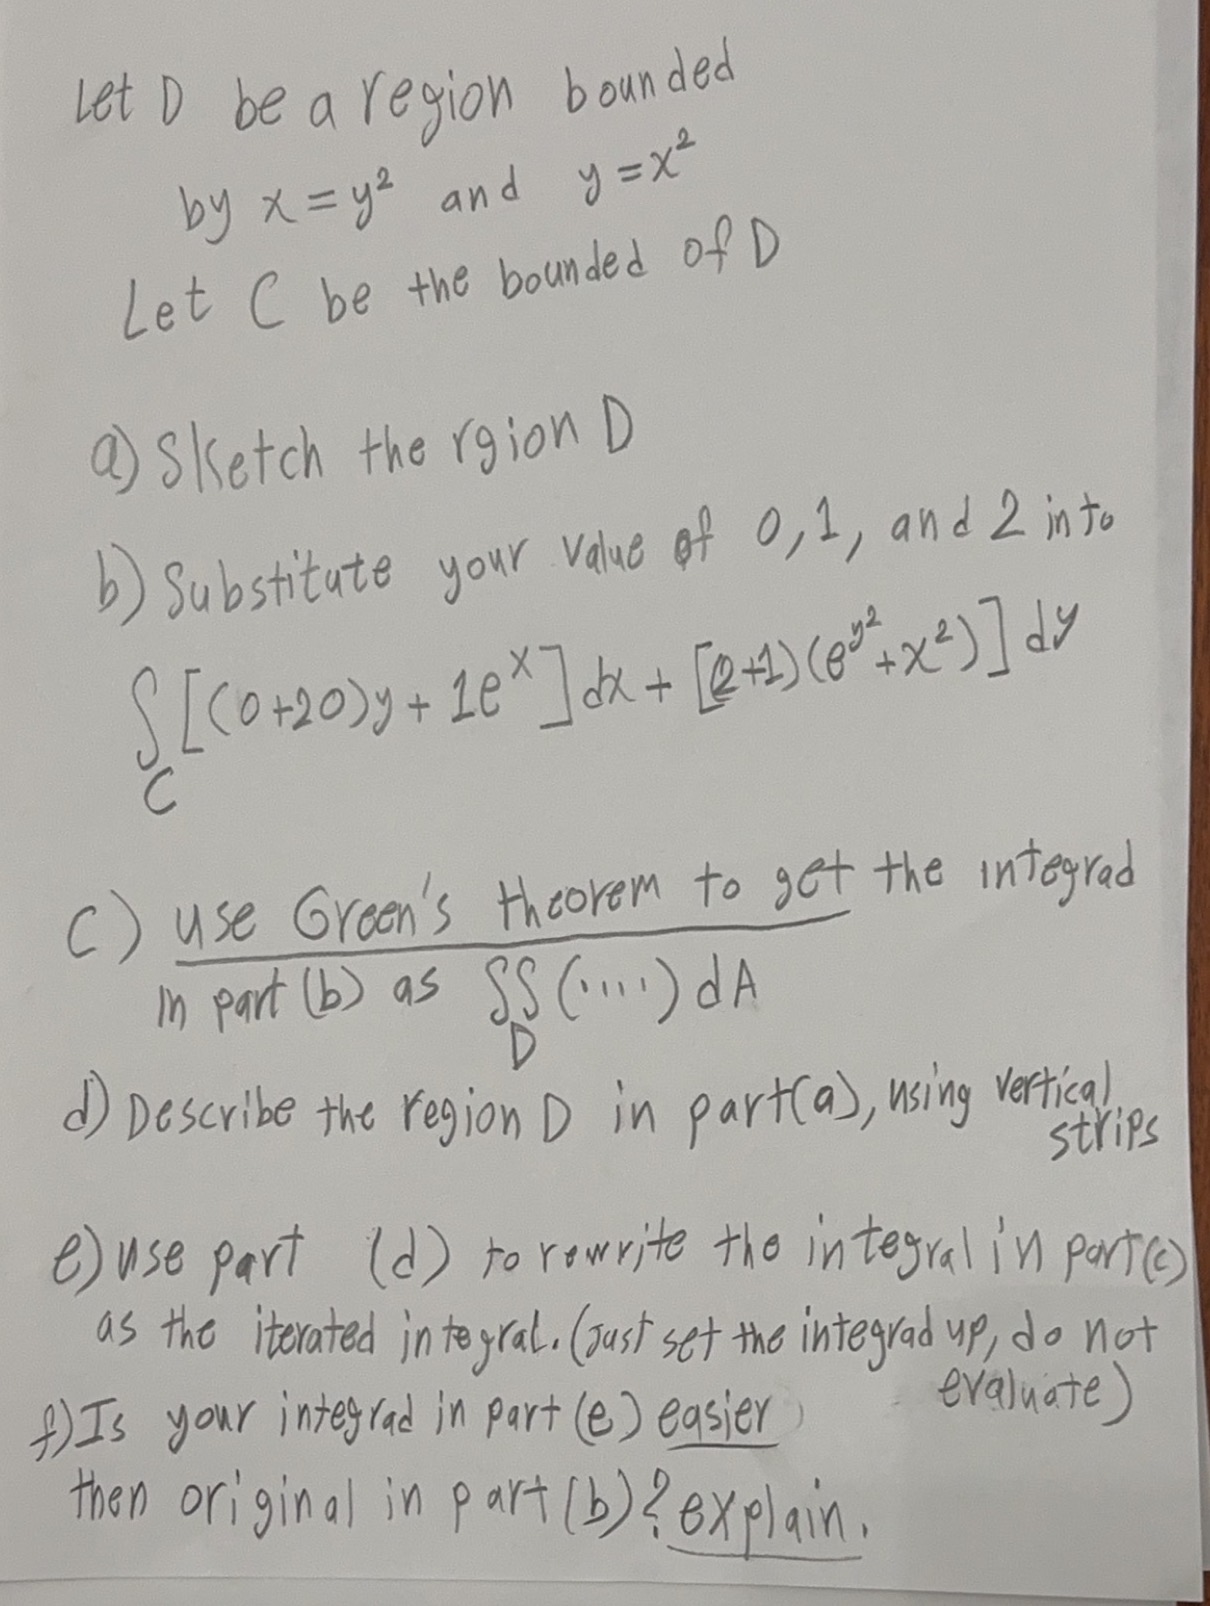 Let D be a region bounded
by x = y² and y = x²
Let C be the bounded of D
a) Sketch the rgion D
b) Substitute your value of 0, 1, and 2 into
∫ [(0+20)y + 1eˣ] dx + [(2+1)(e^y² + x²)] dy
C
C) use Green's theorem to get the integrad
in part (b) as ∬ (....) dA
D
d) Describe the region D in part(a), using vertical
strips
e) use part (d) to rewrite the integral in part(c)
as the iterated integral. (Just set the integrad up, do not
evaluate)
f) Is your integrad in part (e) easier
then original in part (b)? explain.